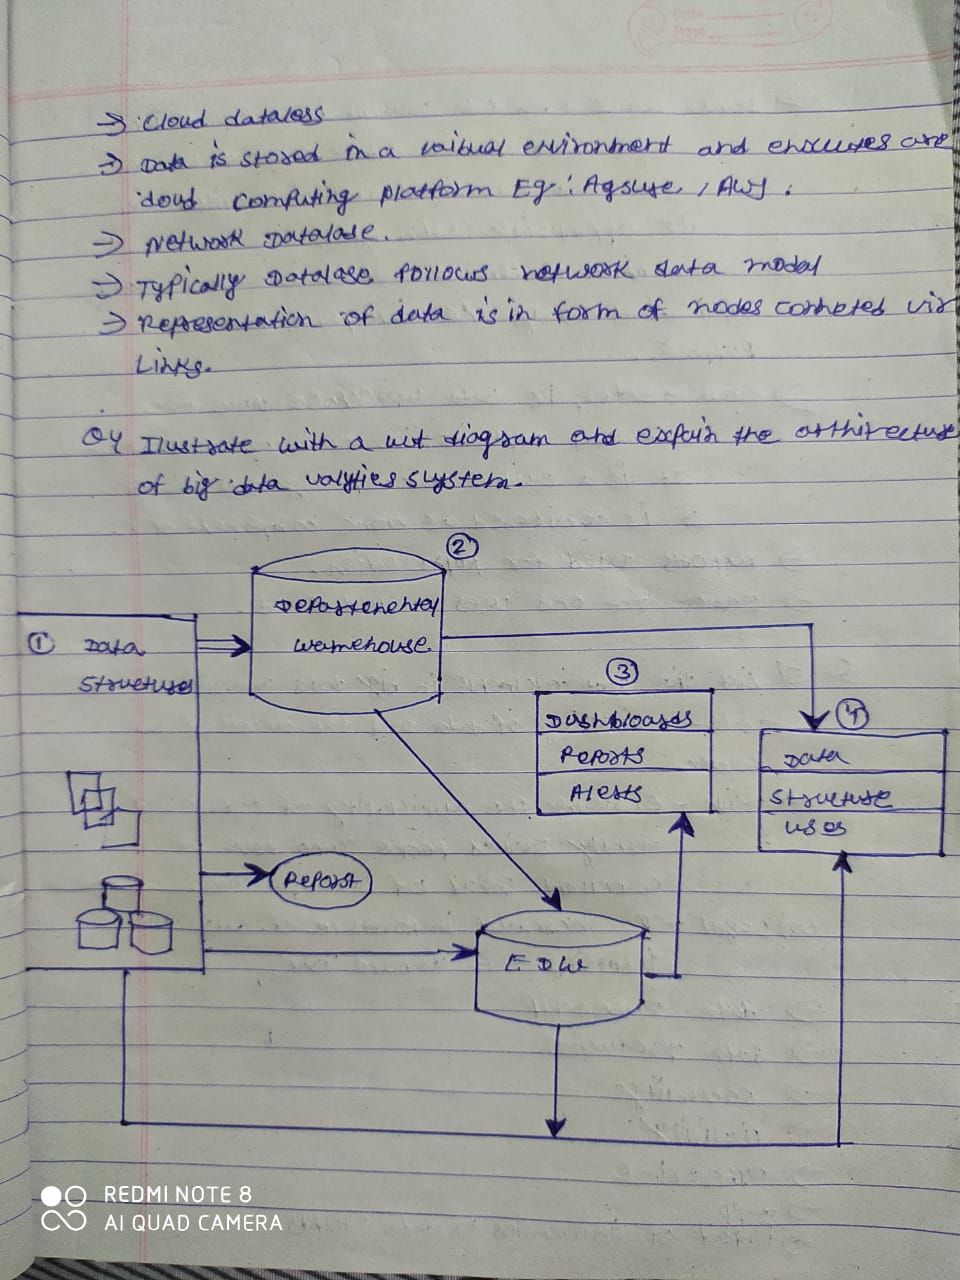 → Cloud dataless
→ Data is stored in a vaitual environment and enxcutes are
doud computing platform Eg: Agsuse, AWS.
→ Network Datalase.
→ Typically Datalase follows network data modal
→ Representation of data is in form of nodes conneted vir
Links.
Q4 Ilustrate with a nut diagram and expain the arthirecture
of big data valytics slystem.
②
Departenentey
① Data
warnehouse
Structures
③
Dashbloards
④
Reports
Data
Alests
Structure
uses
Report
EDW
REDMI NOTE 8
AI QUAD CAMERA